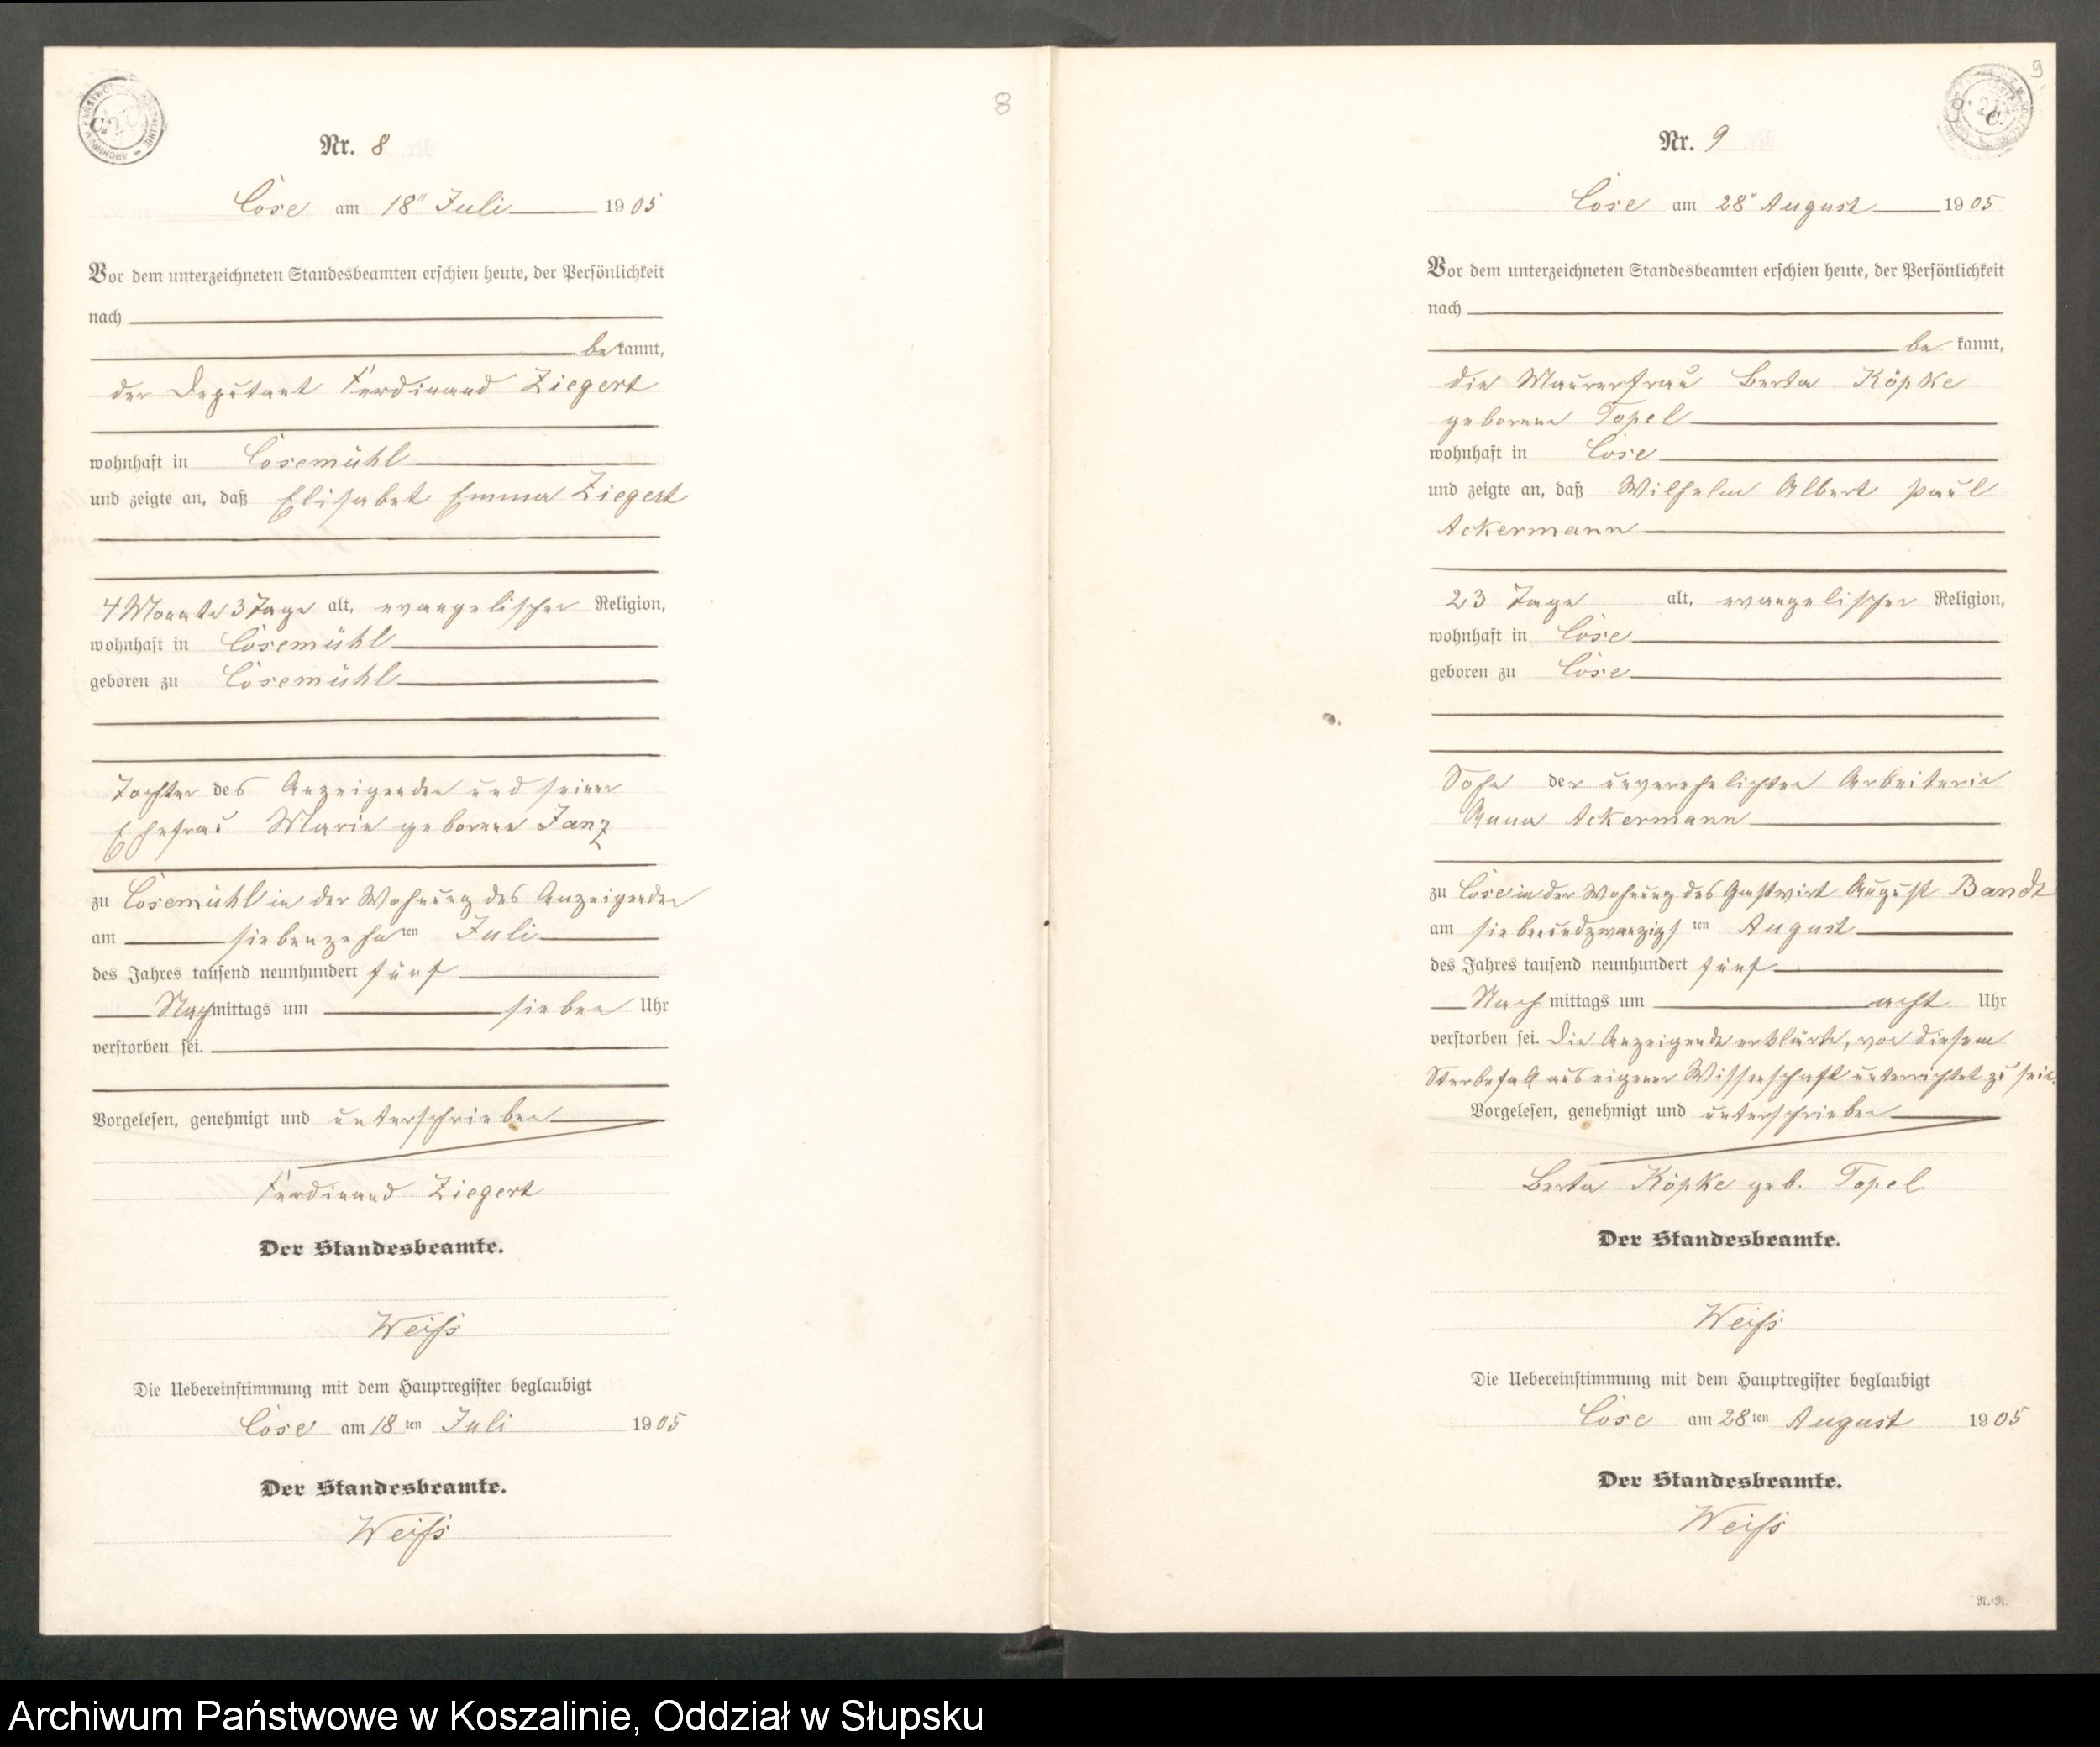 8
Nr. 8
Cöse am 18" Juli 1905
Vor dem unterzeichneten Standesbeamten erschien heute, der Persönlichkeit
nach
bekannt,
der Deputant Ferdinand Ziegert
wohnhaft in Cösemühl
und zeigte an, daß Elisabet Emma Ziegert
4 Monate 3 Tage alt, evangelischer Religion,
wohnhaft in Cösemühl
geboren zu Cösemühl
Tochter des Anzeigenden und seiner
Ehefrau Marie geborene Janz
zu Cösemühl in der Wohnung des Anzeigenden
am siebenzehnten Juli
des Jahres tausend neunhundert fünf
Nachmittags um sieben Uhr
verstorben sei.
Vorgelesen, genehmigt und unterschrieben
Ferdinand Ziegert
Der Standesbeamte.
Weiß
Die Uebereinstimmung mit dem Hauptregister beglaubigt
Cöse am 18ten Juli 1905
Der Standesbeamte.
Weiß
9
Nr. 9
Cöse am 28" August 1905
Vor dem unterzeichneten Standesbeamten erschien heute, der Persönlichkeit
nach
bekannt,
die Maurerfrau Berta Köpke
geborene Topel
wohnhaft in Cöse
und zeigte an, daß Wilhelm Albert Paul
Ackermann
23 Tage alt, evangelischer Religion,
wohnhaft in Cöse
geboren zu Cöse
Sohn der unverehelichten Arbeiterin
Anna Ackermann
zu Cöse in der Wohnung des Gastwirt August Bandt
am siebenundzwanzigsten August
des Jahres tausend neunhundert fünf
Nachmittags um acht Uhr
verstorben sei. Die Anzeigende erklärte, von diesem
Sterbefall aus eigener Wissenschaft unterrichtet zu sein.
Vorgelesen, genehmigt und unterschrieben
Berta Köpke geb. Topel
Der Standesbeamte.
Weiß
Die Uebereinstimmung mit dem Hauptregister beglaubigt
Cöse am 28ten August 1905
Der Standesbeamte.
Weiß
N.-N.
Archiwum Państwowe w Koszalinie, Oddział w Słupsku